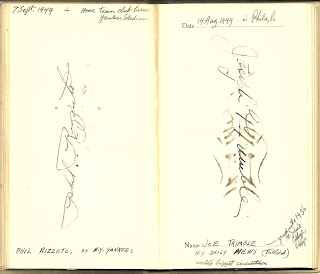 7 Sept. 1949 in Home team club house
Yankee Stadium
Phil Rizzuto
PHIL RIZZUTO, NY. YANKEES
Date 14 Aug 1949 in Phila
Joseph Trimble
Name JOE TRIMBLE
N.Y. DAILY NEWS (Tabloid)
world's biggest circulation